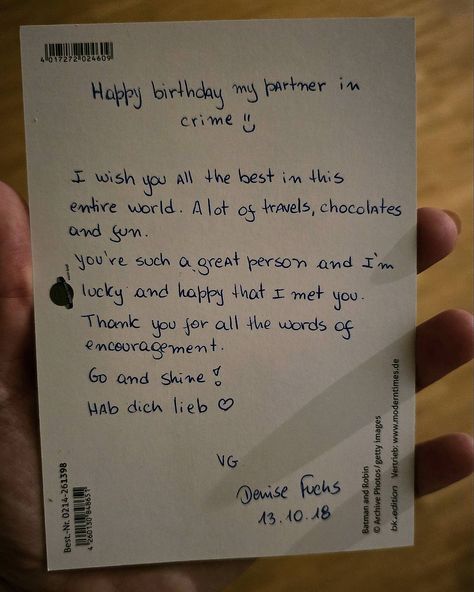 4 017272 024609
Happy birthday my partner in
crime
I wish you all the best in this
entire world. A lot of travels, chocolates
and fun.
You're such a great person and I'm
lucky and happy that I met you.
Thank you for all the words of
encouragement.
Go and shine!
Hab dich lieb ♡
VG
Denise Fuchs
13.10.18
Best.-Nr. 0214-261398
4 260130 848651
Batman and Robin
© Archive Photos/getty Images
bk-edition Vertrieb: www.moderntimes.de